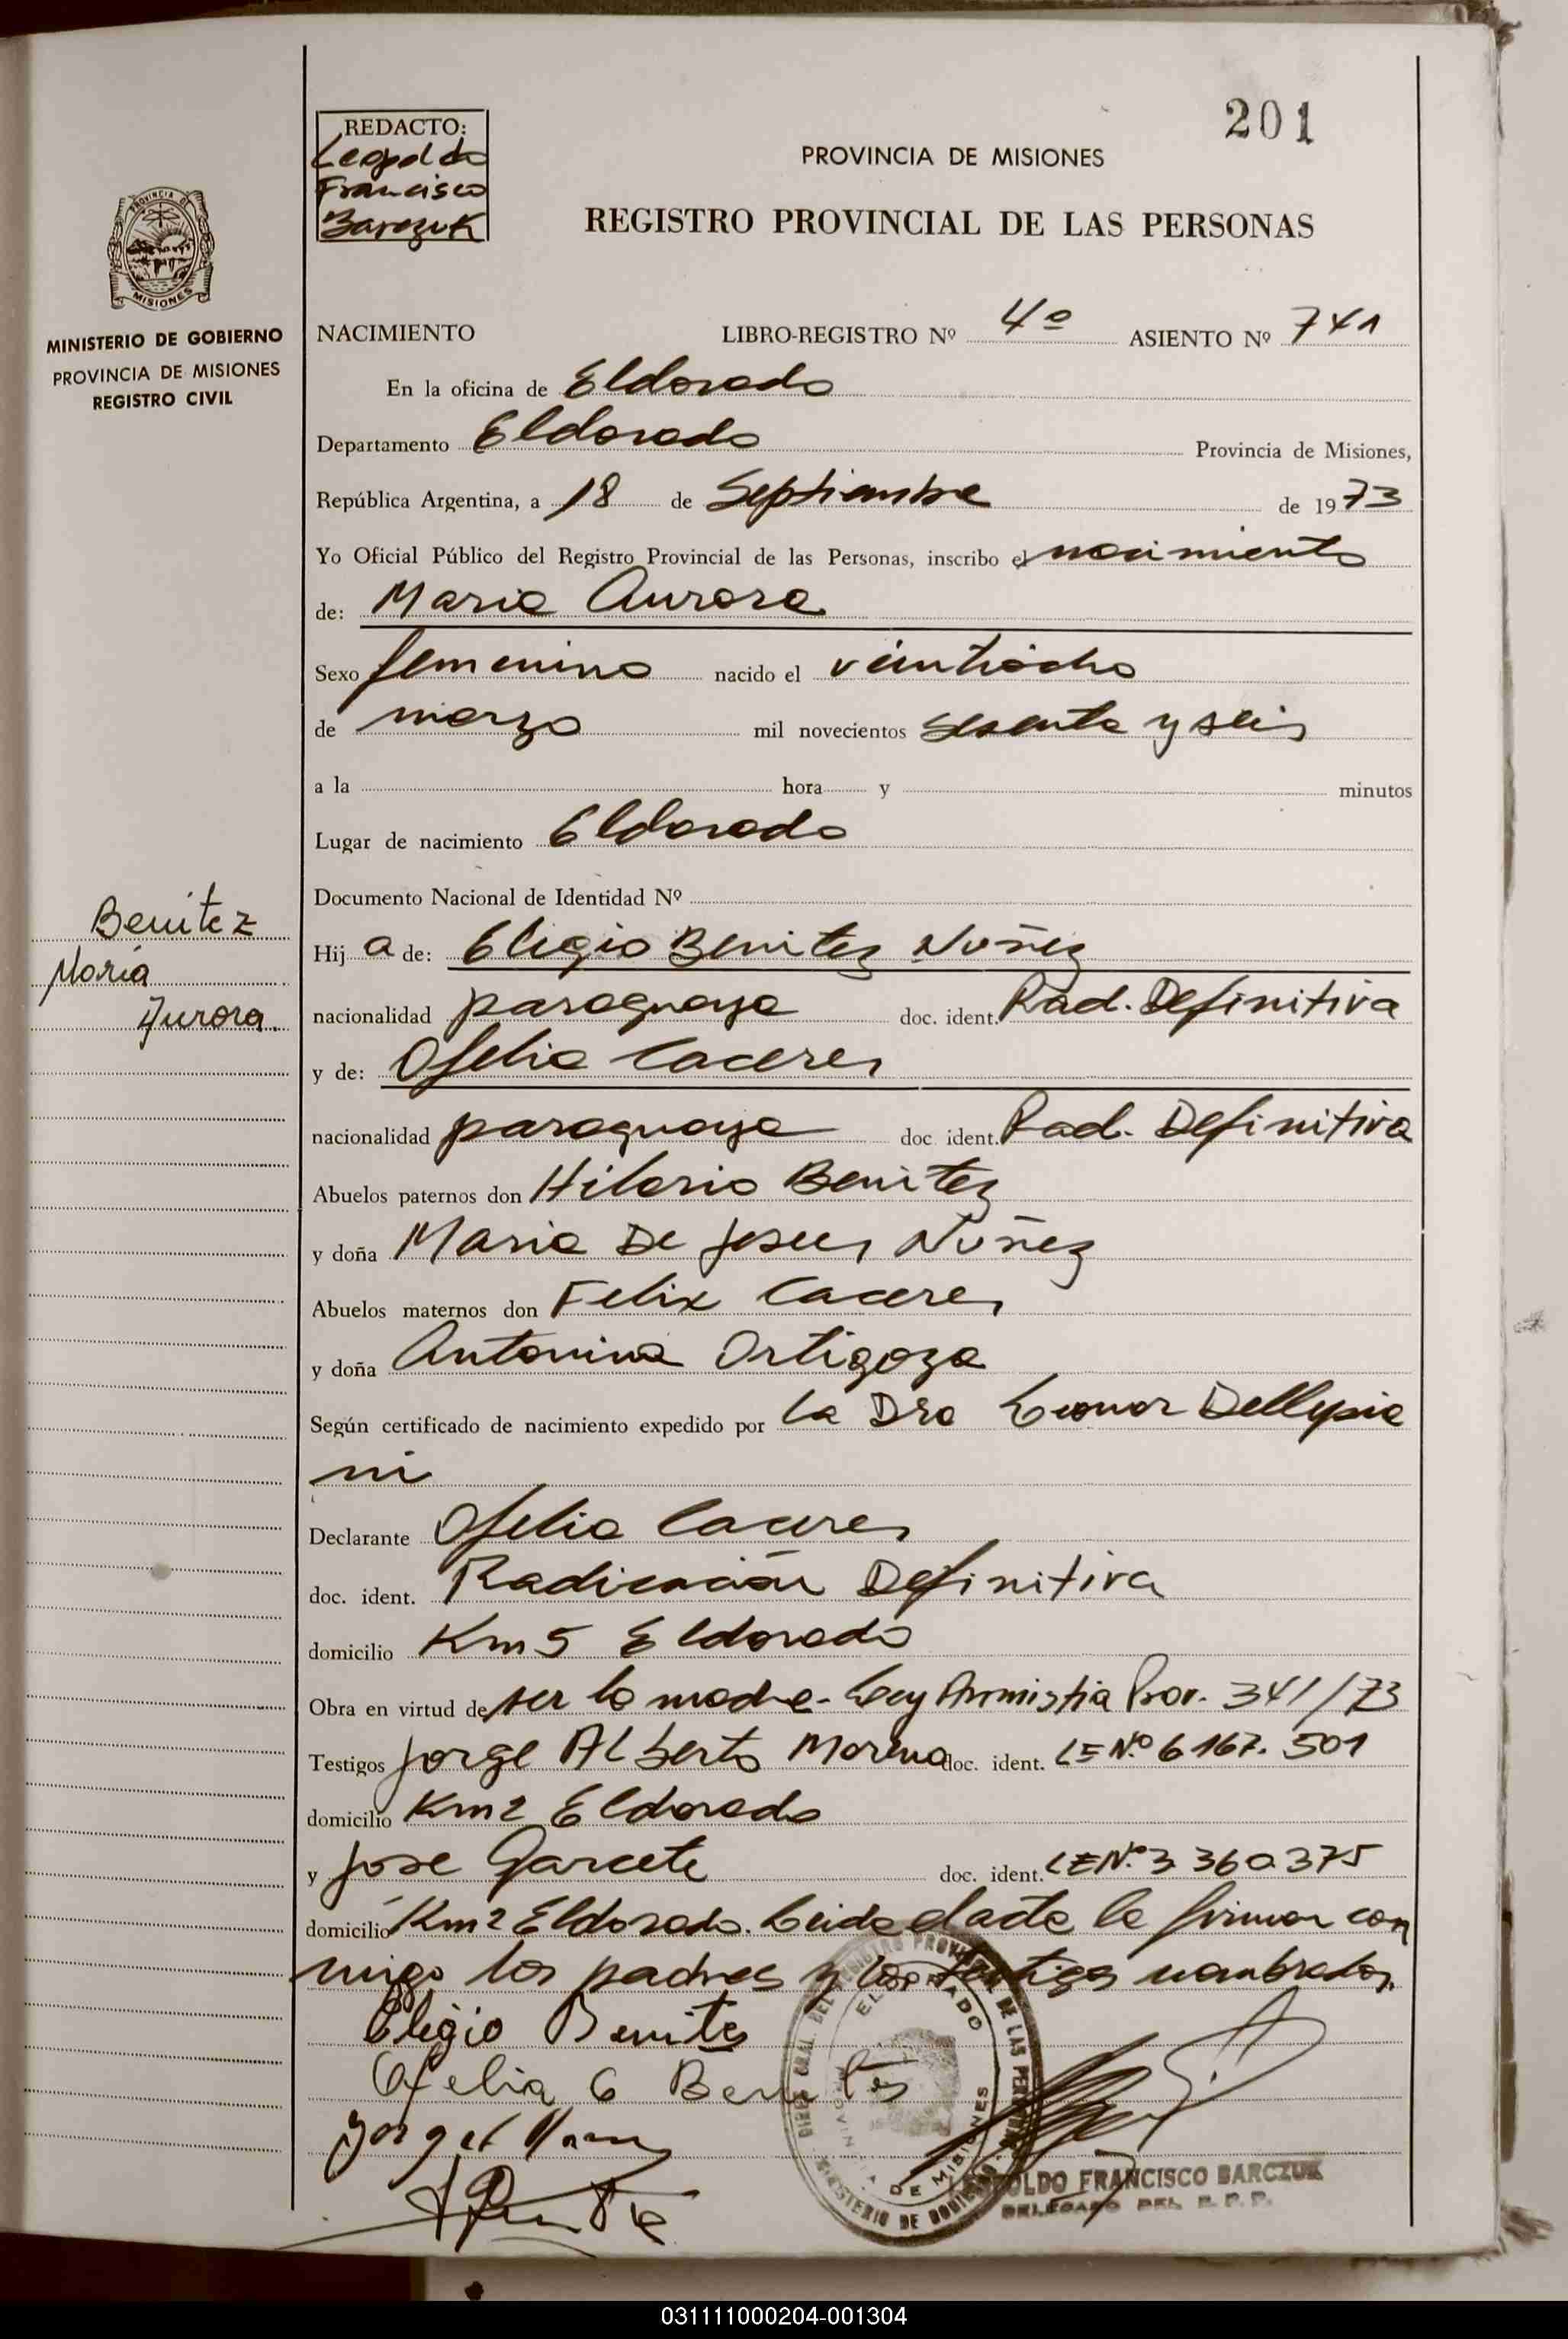 201
REDACTO:
Leopoldo
Francisco
Barczuk
PROVINCIA DE MISIONES
REGISTRO PROVINCIAL DE LAS PERSONAS
PROVINCIA DE
MISIONES
MINISTERIO DE GOBIERNO
PROVINCIA DE MISIONES
REGISTRO CIVIL
NACIMIENTO LIBRO-REGISTRO Nº 4º ASIENTO Nº 741
En la oficina de Eldorado
Departamento Eldorado Provincia de Misiones,
República Argentina, a 18 de Septiembre de 1973
Yo Oficial Público del Registro Provincial de las Personas, inscribo el nacimiento
de: Maria Aurora
Sexo femenino nacido el veintiocho
de marzo mil novecientos sesenta y seis
a la hora y minutos
Lugar de nacimiento Eldorado
Documento Nacional de Identidad Nº
Benitez
María
Aurora.
Hij a de: Eligio Benitez Nuñez
nacionalidad paraguaya doc. ident. Rad. Definitiva
y de: Ofelia Caceres
nacionalidad paraguaya doc ident. Rad. Definitiva
Abuelos paternos don Hilario Benitez
y doña Maria De Jesus Nuñez
Abuelos maternos don Felix Caceres
y doña Antonina Ortigoza
Según certificado de nacimiento expedido por la Dra Leonor Dellepia
ni
Declarante Ofelia Caceres
doc. ident. Radicación Definitiva
domicilio Km 5 Eldorado
Obra en virtud de ser la madre - Ley Amnistia Prov. 341/73
Testigos Jorge Alberto Moreno doc. ident. LE Nº 6167.501
domicilio Km 2 Eldorado
y Jose Garcete doc. ident. LE Nº 3 360375
domicilio Km 2 Eldorado. Leida el acta la firman con
migo los padres y los testigos nombrados.
Eligio Benites
Ofelia C Benites
ELDORADO
PROVINCIA DE MISIONES
LEOPOLDO FRANCISCO BARCZUK
DELEGADO DEL R. P. P.
031111000204-001304